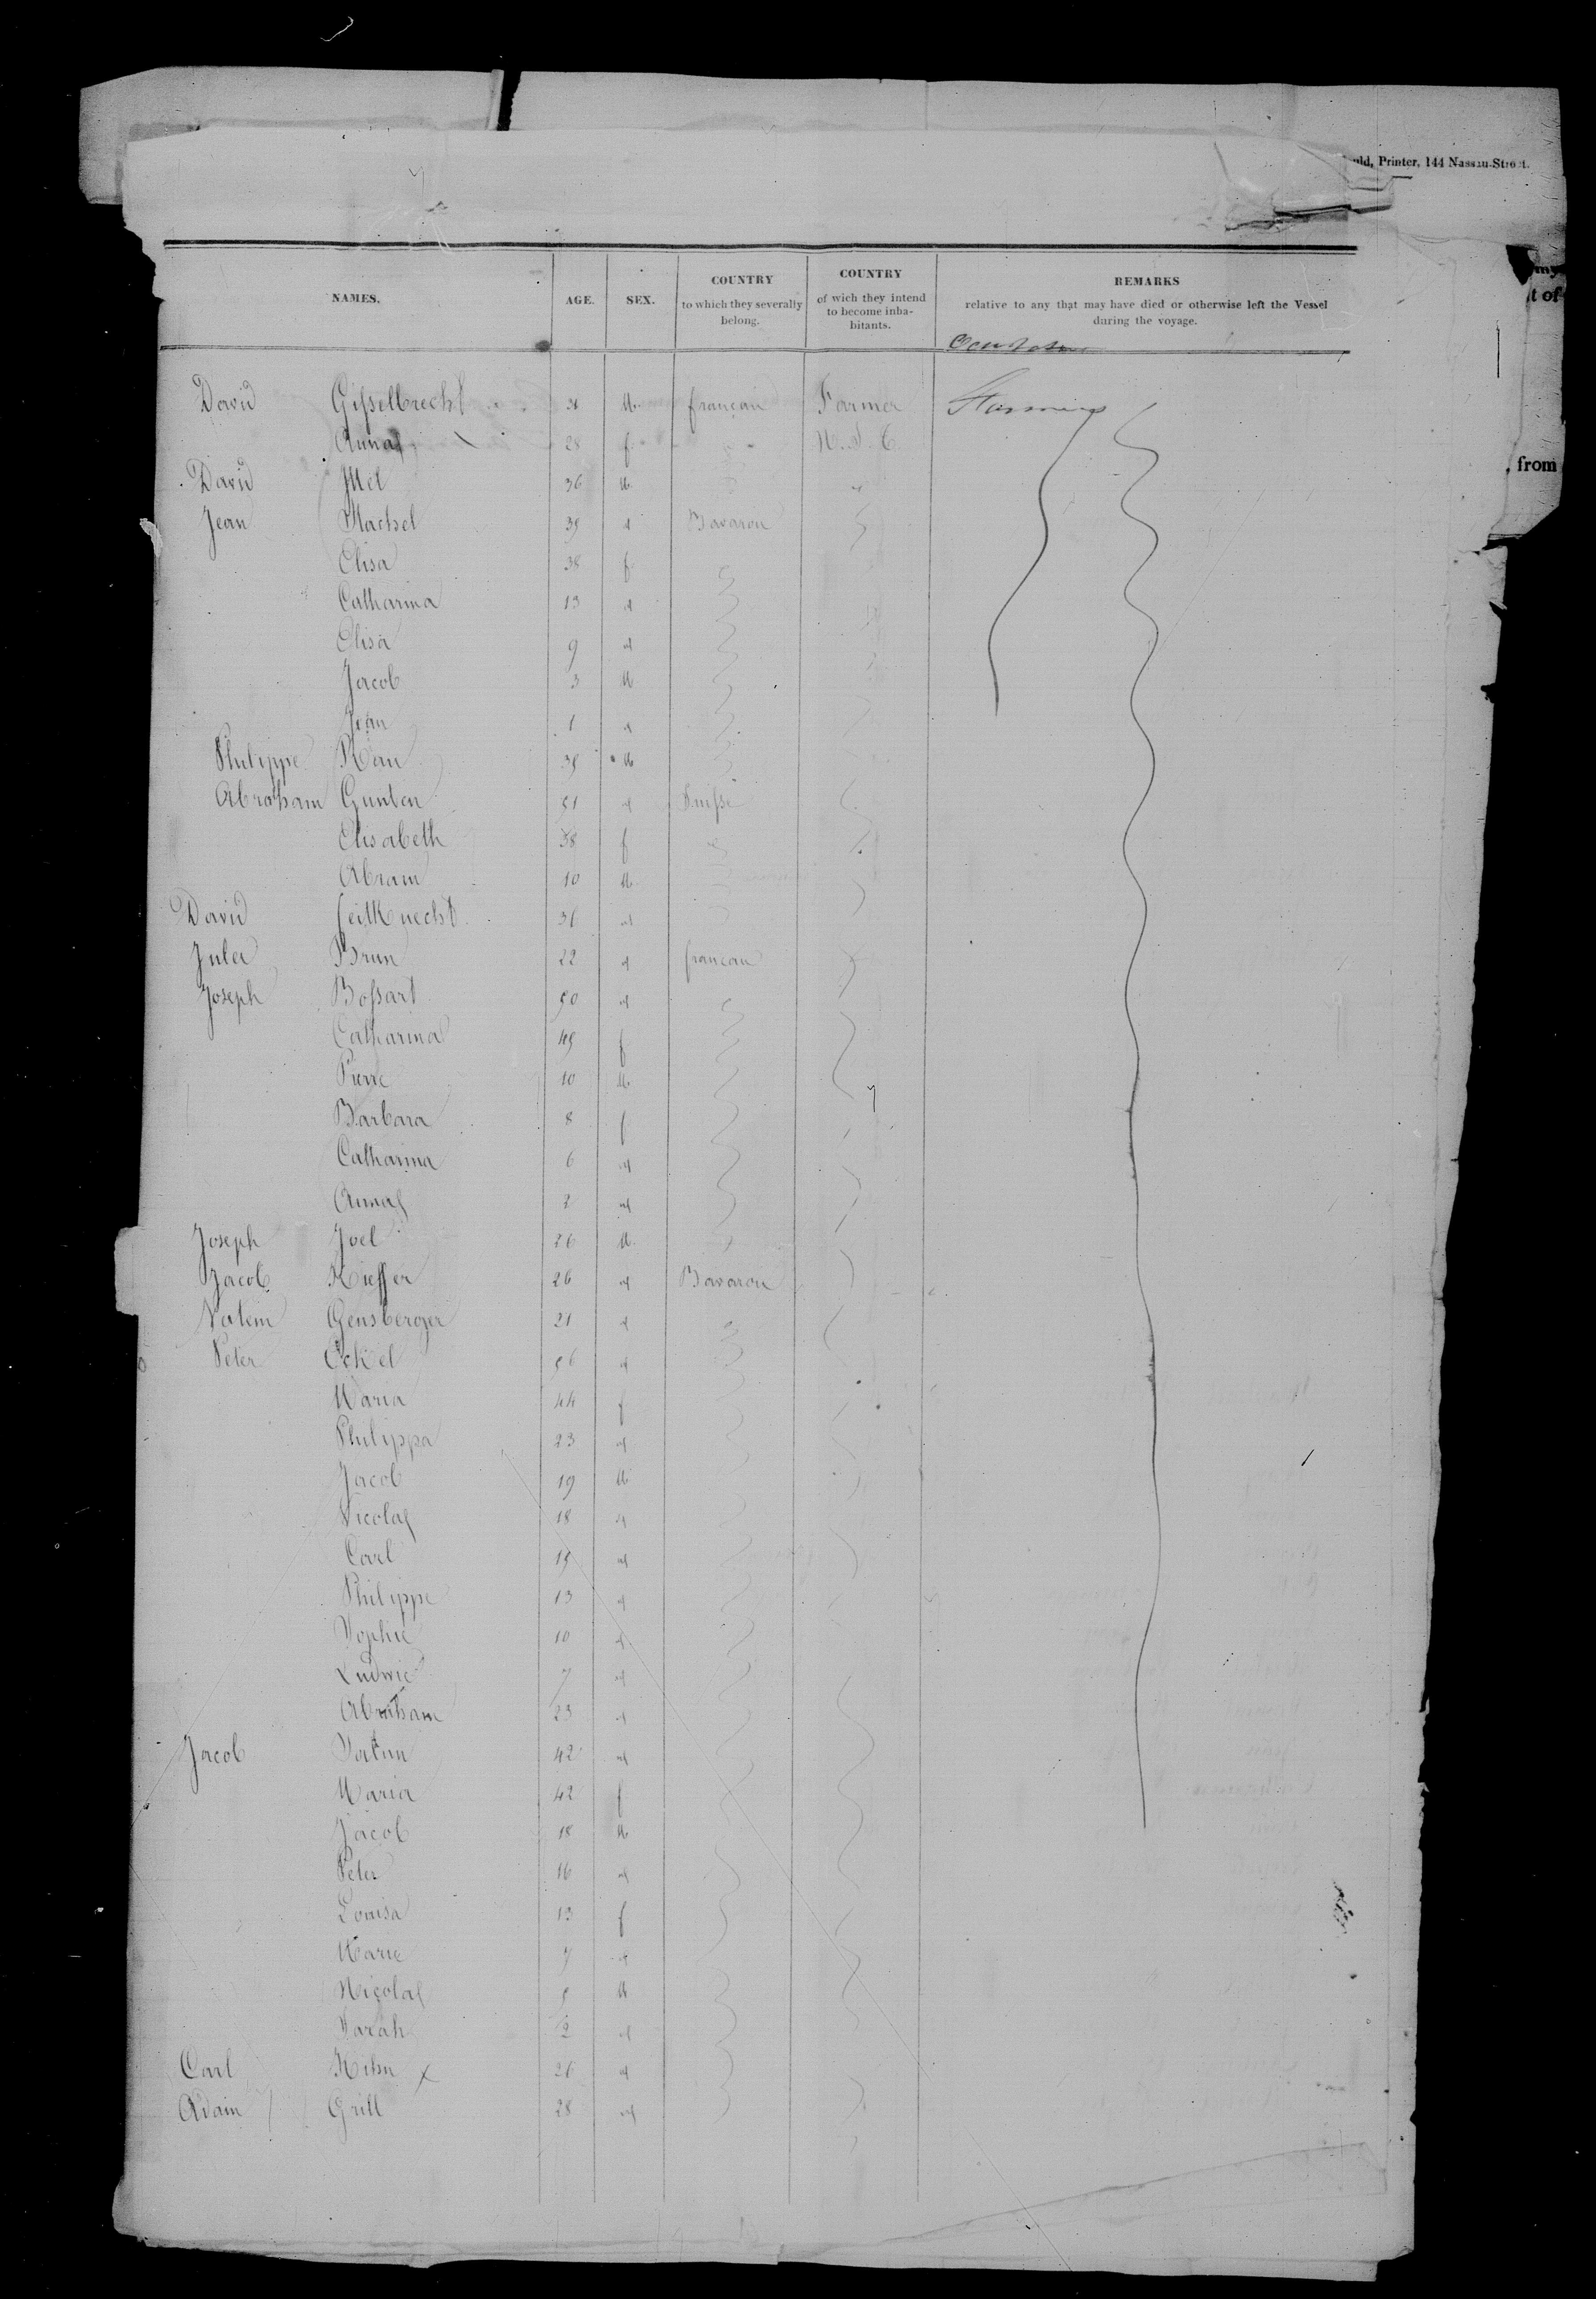 Printer, 144 Nassau-Street.
my
t of
from
NAMES. AGE. SEX. COUNTRY to which they severally belong. COUNTRY of wich they intend to become inhabitants. REMARKS relative to any that may have died or otherwise left the Vessel during the voyage.
David Gisselbrecht M. français Farmer
Anna 28 f
David 36 M
Jean Machel 35 " Bavarois
Elisa 38 f
Catharina 13 "
Elisa 9 "
Jacob 3 M
Jean 1 "
Philippe Rau 35 M
Abraham Gunten 51 " Suisse
Elisabeth 38 f
Abram 10 M
David Leitknecht 36 "
Jules Brun 22 " français
Joseph Bossart 50 "
Catharina 45 f
Pierre 10 M.
Barbara 8 f
Catharina 6 "
Anna 2 "
Joseph Joel 26 M.
Jacob Kieffer 26 " Bavarois
Gensberger 21 "
Peter Eckel 56 "
Maria 44 f
Philippa 23 "
Jacob 19 M
Nicolas 18 "
Carl 15 "
Philippe 13 "
Sophie 10 "
Ludwic 7 "
Abraham 23 "
Jacob 42 "
Maria 42 f
Jacob 18 M
Peter 16 "
Louisa 13 f
Marie 7 "
Nicolas 5 M
Sarah 2 "
Carl Kihn x 26 "
Adam Grill 28 "